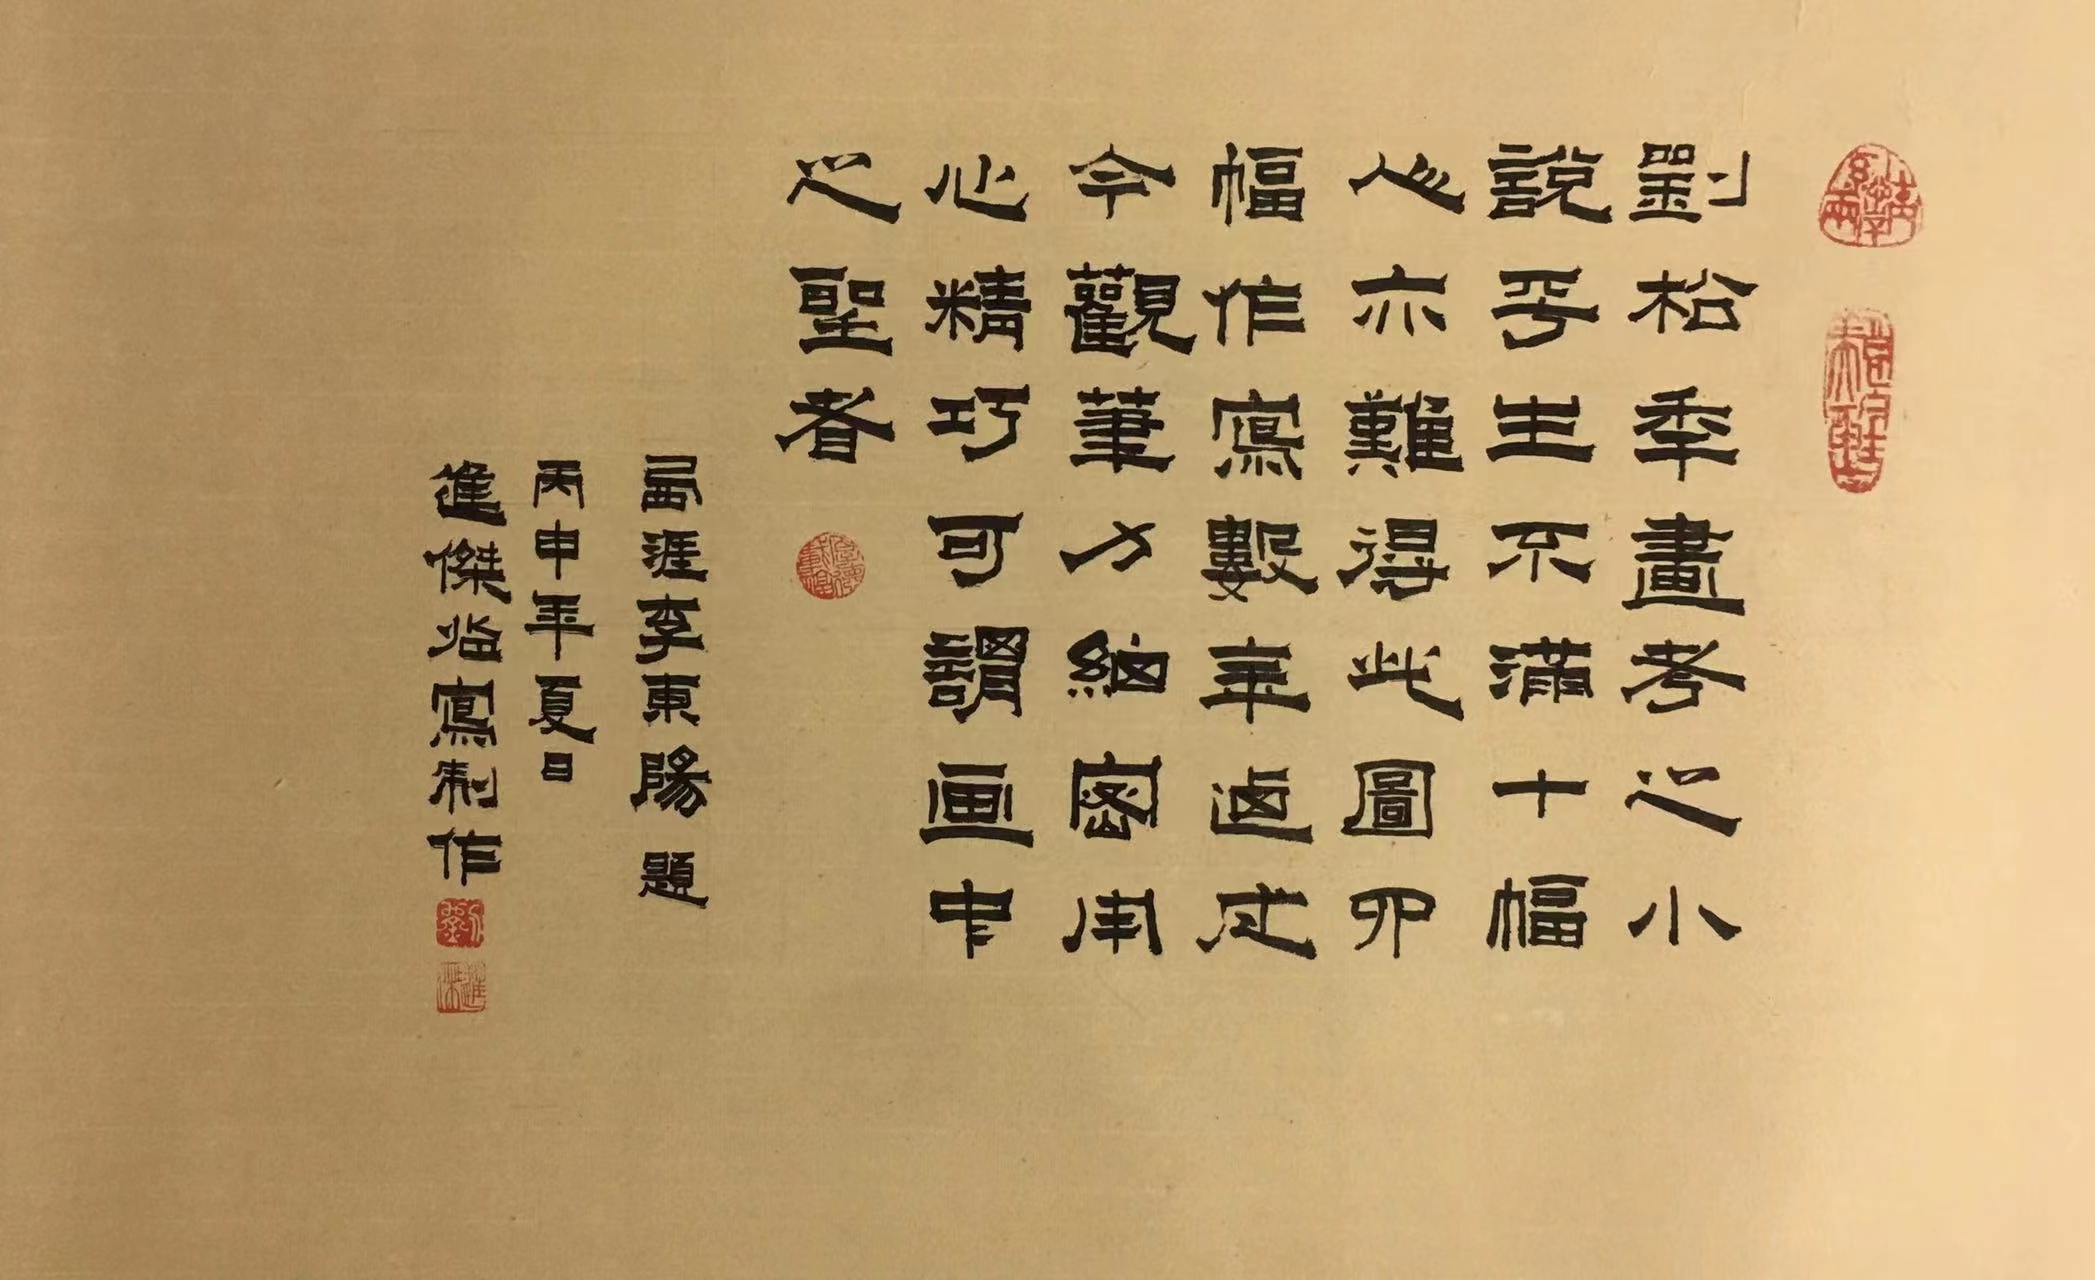 劉松秊畫考之小
說平生不滿十幅
人亦難得此圖四
幅作寫數年迺成
今觀筆力細密用
心精巧可謂画中
之聖者
西涯李東陽題
丙申年夏日
進傑临寫制作
劉
進傑